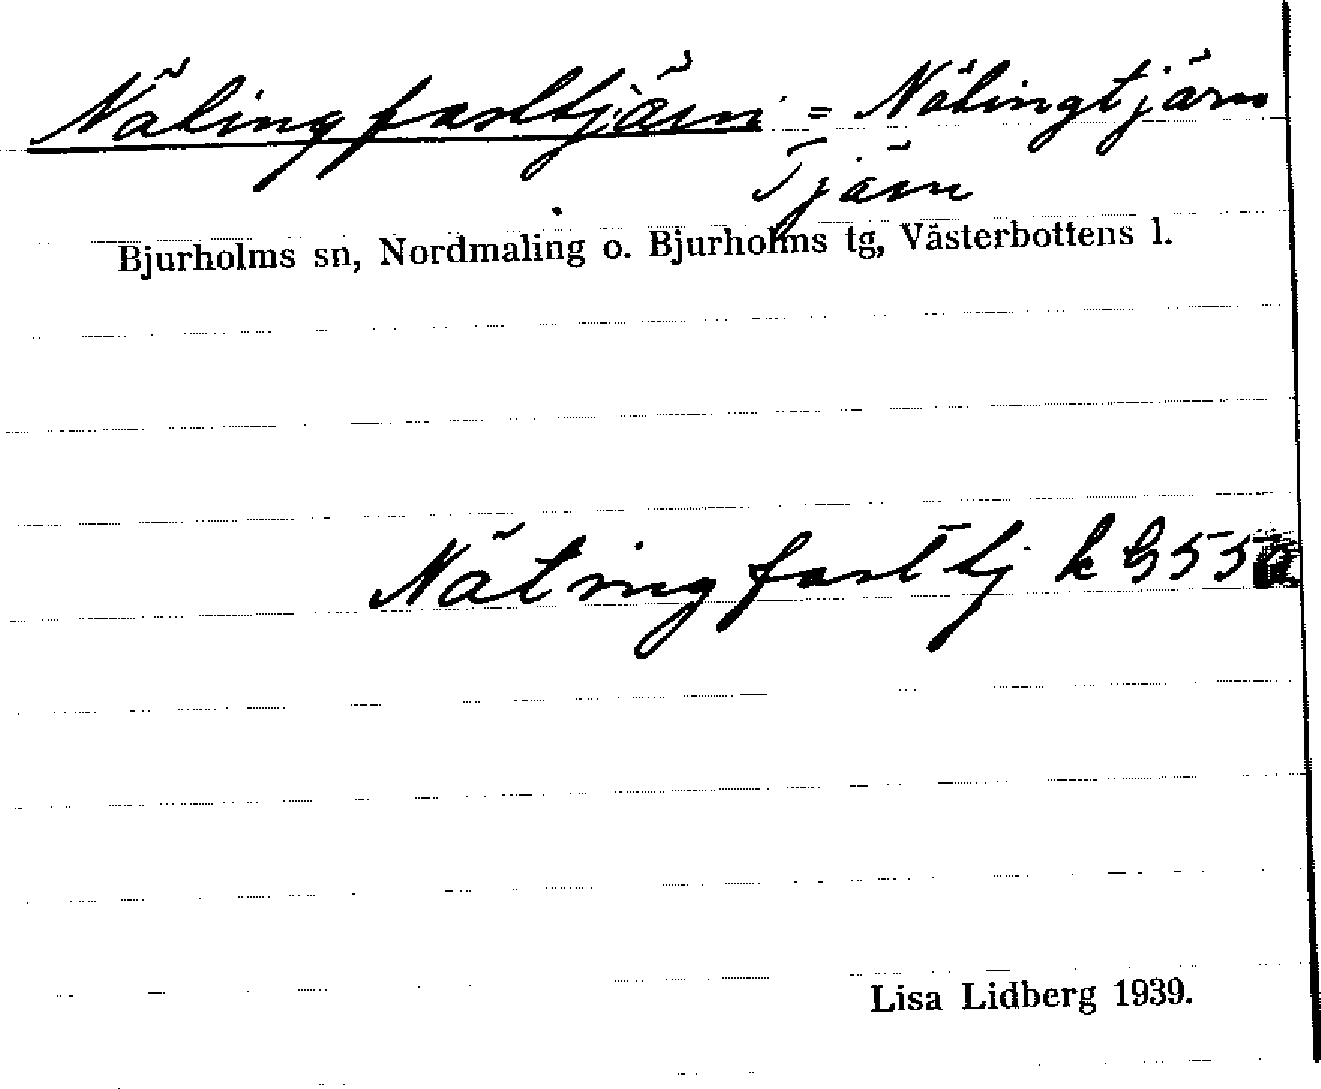 Nälingfastjärn = Nälingtjärn
Tjärn
Bjurholms sn, Nordmaling o. Bjurholms tg, Västerbottens l.
k G 55
Lisa Lidberg 1939.